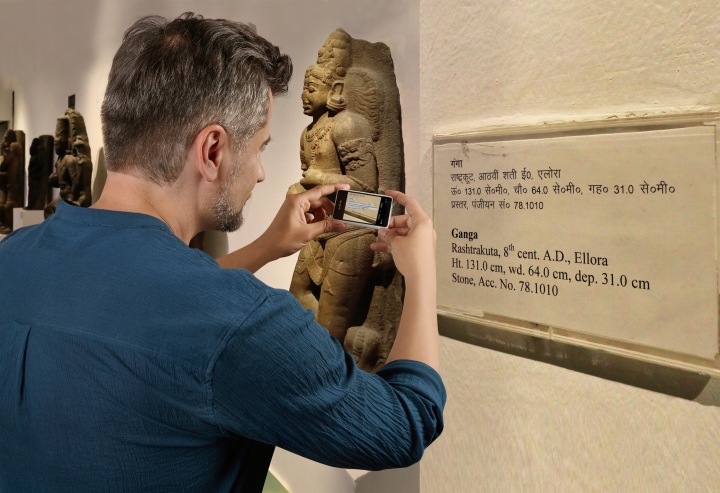 गंगा
राष्ट्रकूट, आठवीं शती ई०, एलोरा
ऊ० 131.0 से०मी०, चौ० 64.0 से०मी०, गह० 31.0 से०मी०
प्रस्तर, पंजीयन सं० 78.1010
Ganga
Rashtrakuta, 8th cent. A.D., Ellora
Ht. 131.0 cm, wd. 64.0 cm, dep. 31.0 cm
Stone, Acc. No. 78.1010